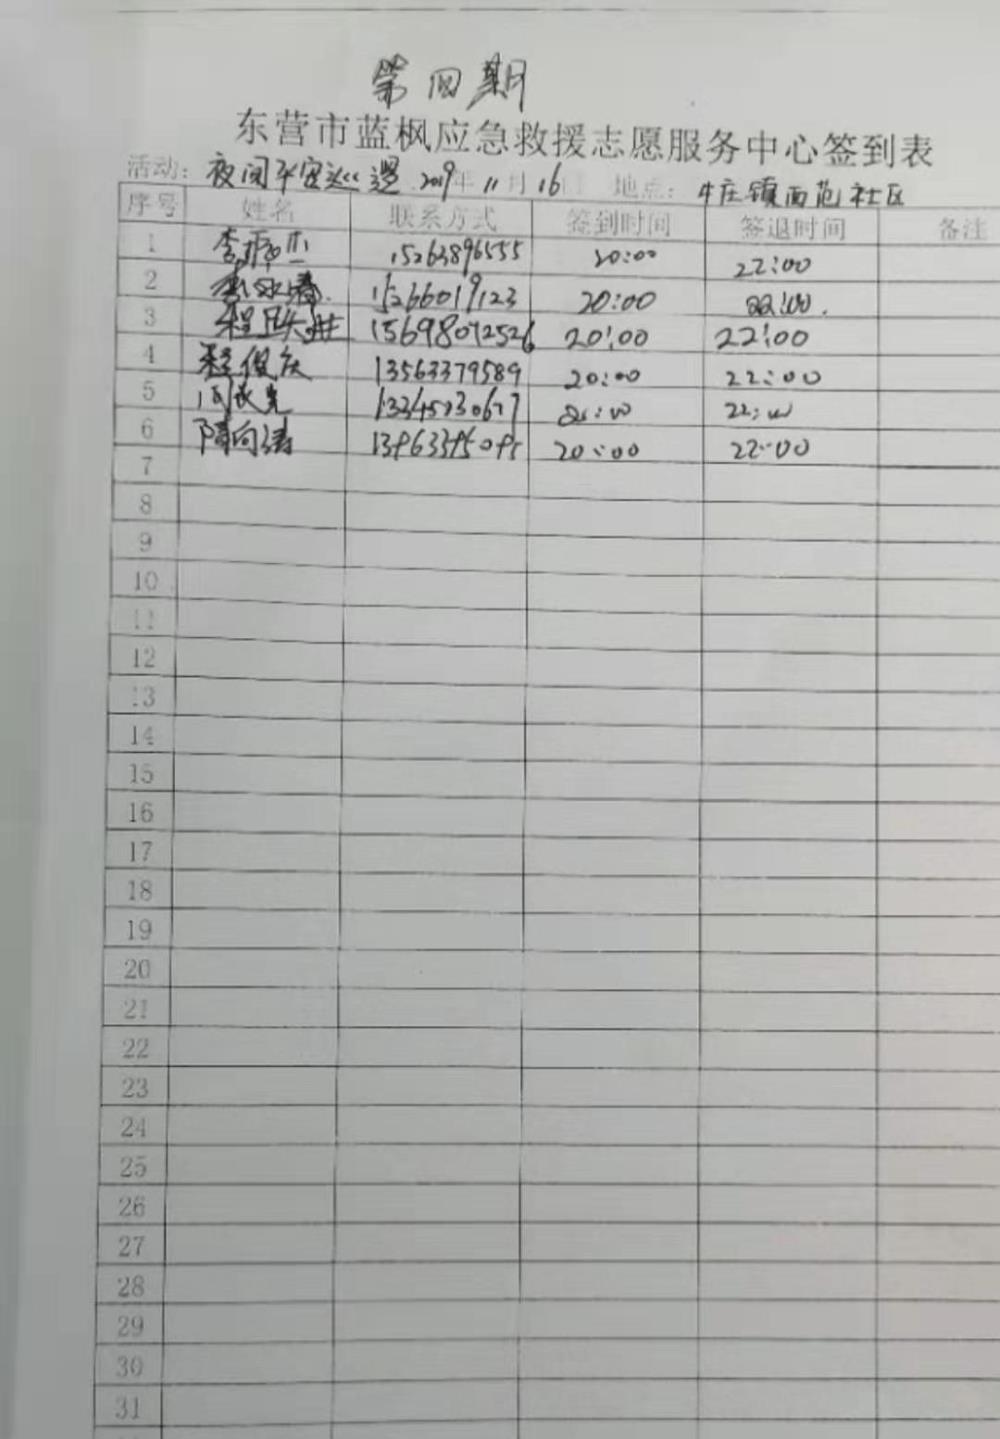 第四期
东营市蓝枫应急救援志愿服务中心签到表
活动: 夜间平安巡逻 2019年11月16日 地点: 牛庄镇西范社区
序号 姓名 联系方式 签到时间 签退时间 备注
1 李 15263896555 20:00 22:00
2 李永 15266019123 20:00 22:00.
3 程 15698072526 20:00 22:00
4 程俊庆 13563379589 20:00 22:00
5 20:00 22:00
6 隋向涛 20:00 22:00
7
8
9
10
11
12
13
14
15
16
17
18
19
20
21
22
23
24
25
26
27
28
29
30
31